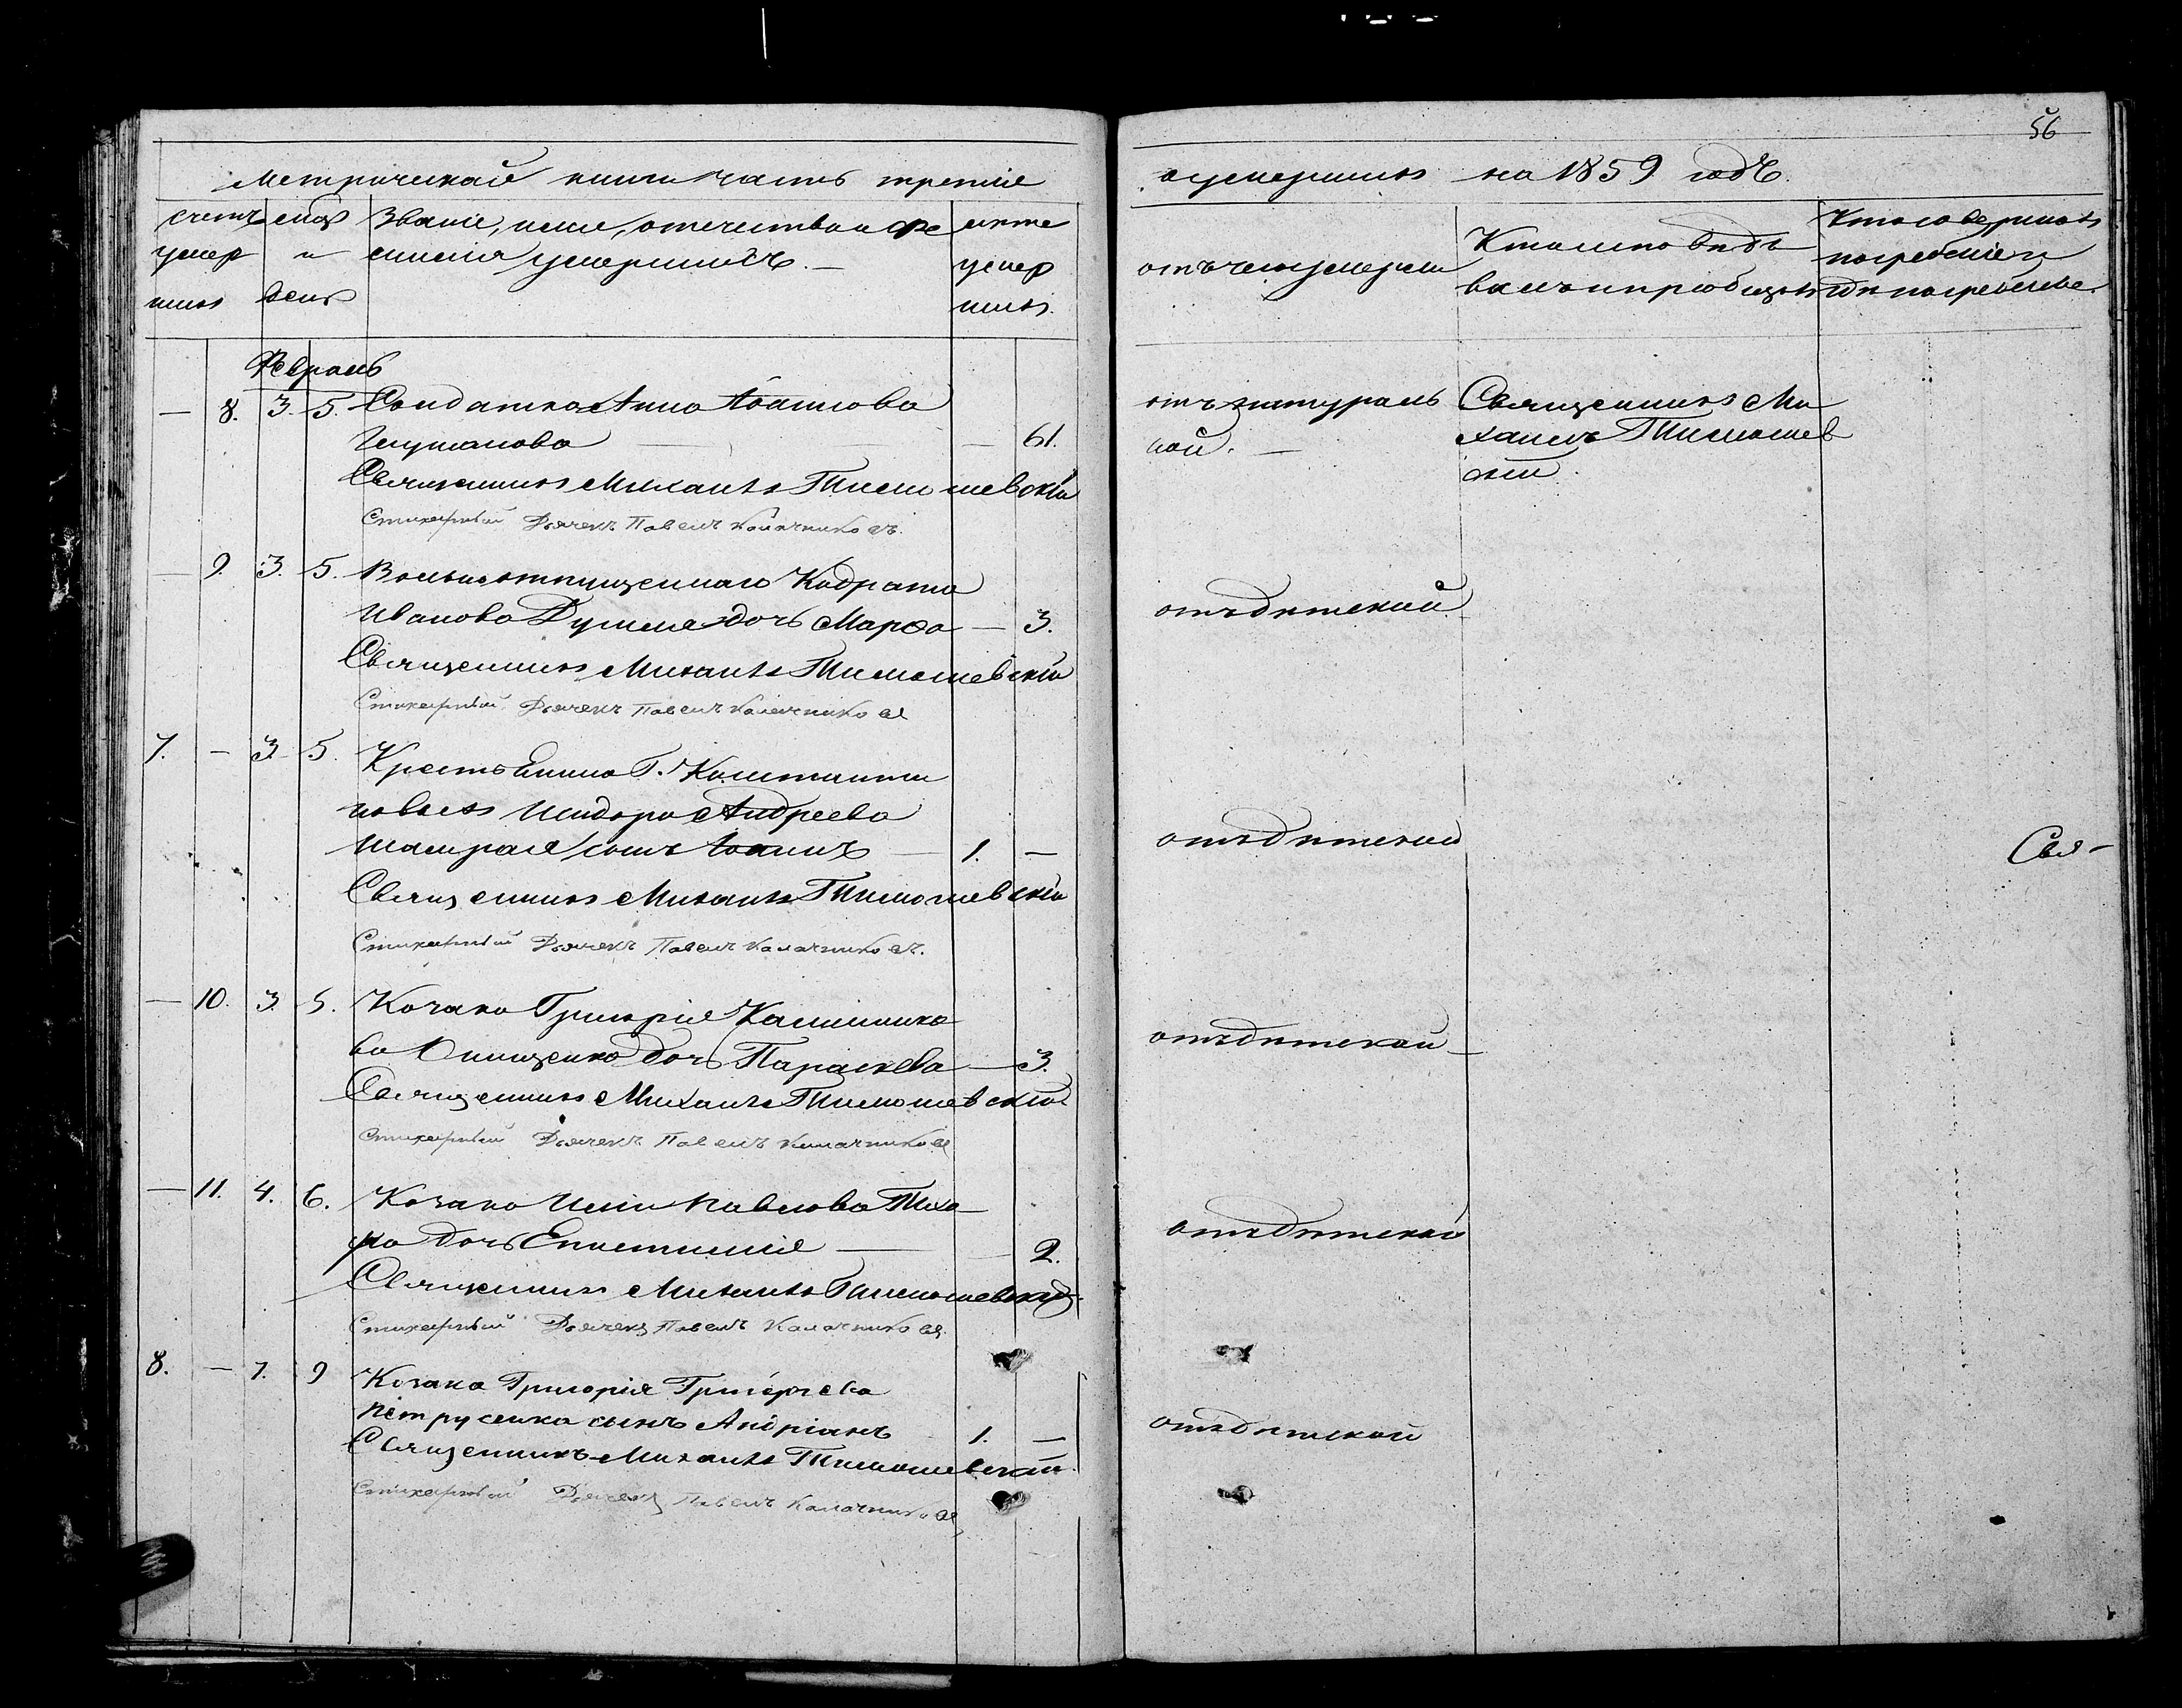 56
Метрической книги часть третия
о умершихъ на 1859 годъ.
счетъ умер шихъ
мсцъ и день
Званіе, имя, отечество и фамилія умершихъ. —
лѣта умер шихъ.
отъ чего умерли
Кто исповѣды валъ и пріобщалъ
Кто совершалъ погребеніе и гдѣ погребены.
Февраль
— 8. 3. 5. Солдатка Анна Іоаннова
— 61.
Священникъ Михаилъ Тимошевскій
Стихарный Дьячекъ Павелъ Калачниковъ.
отъ натураль
ной. —
Священникъ Ми
хаилъ Тимошев
скій.
— 9. 3. 5. Вольноотпущеннаго Кодрата
Иванова дочь Марфа — 3.
Священникъ Михаилъ Тимошевскій
Стихарный Дьячекъ Павелъ Калачниковъ
отъ дѣтской.
7. — 3. 5. Крестьянина Г. Константи
Исидора Андреева
сынъ Іоаннъ — 1. —
Священникъ Михаилъ Тимошевскій
Стихарный Дьячекъ Павелъ Калачниковъ.
отъ дѣтской
Свя-
— 10. 3. 5. Козака Григорія Калиннико
ва Онищенко дочь Параскева — 3.
Священникъ Михаилъ Тимошевскій
Стихарный Дьячекъ Павелъ Калачниковъ
отъ дѣтской —
— 11. 4. 6. Козака Иліи Павлова
дочь Епистимія — 2.
Священникъ Михаилъ Тимошевскій
Стихарный Дьячекъ Павелъ Калачниковъ.
отъ дѣтской
8. — 7. 9 Козака Григорія Григорьева
Петрусенка сынъ Андріанъ 1. —
Священникъ Михаилъ Тимошевскій.
Стихарный Дьячекъ Павелъ Калачниковъ
отъ дѣтской